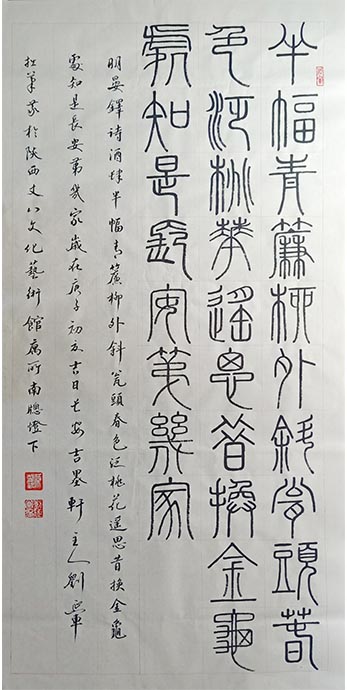 半幅青簾柳外斜瓮頭春
色泛桃華遙思昔換金龜
處知是長安第幾家
明晏鐸诗酒肆半幅青簾柳外斜瓮頭春色泛桃花遥思昔換金龜
處知是長安第幾家歲在庚子初夏吉日長安吉墨軒主人劉軍
拙筆於陝西丈八文化藝術館寓所南牕燈下